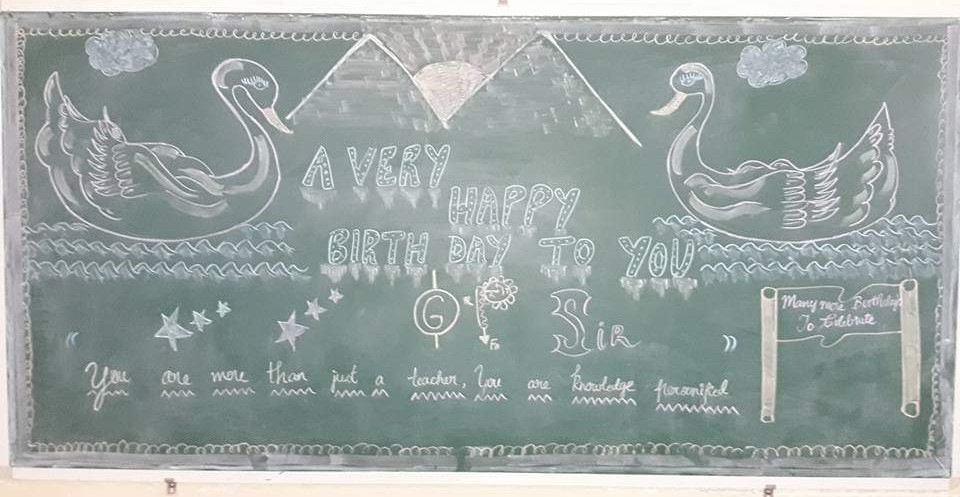 A VERY
HAPPY
BIRTH DAY TO YOU
G Sir
Many more Birthdays
To Celebrate
" You are more than just a teacher, You are knowledge personified "